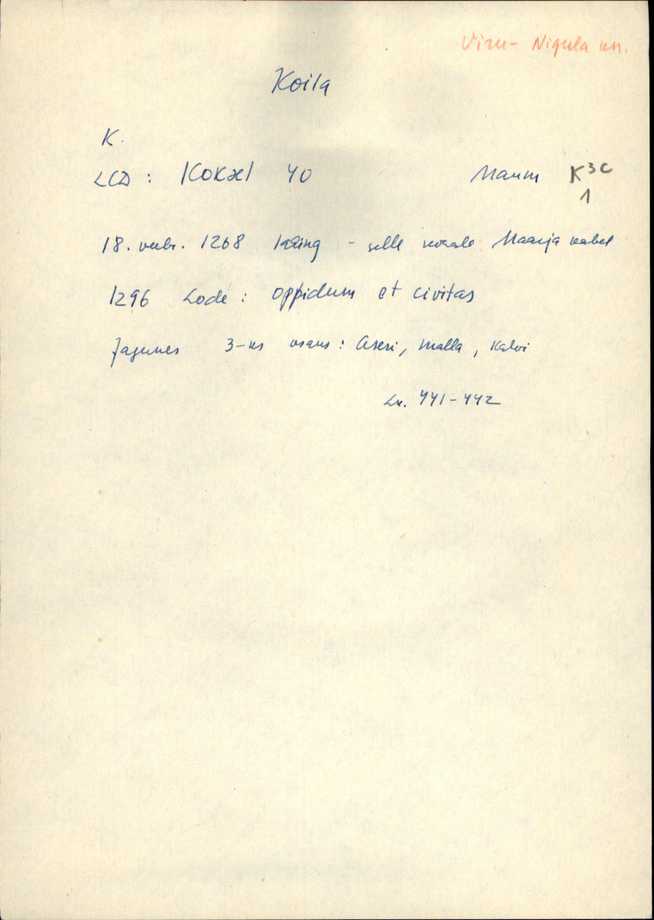 Viru-Nigula khn.
Koila
K.
LCD: Kokæl 40
K 3C
1
18. veebr. 1268 lahing - selle kohale Maarja kabel
1296 Lode: oppidum et civitas
Jagunes 3-ks osaks: Aseri, Malla, Kalvi
Lk. 441-442